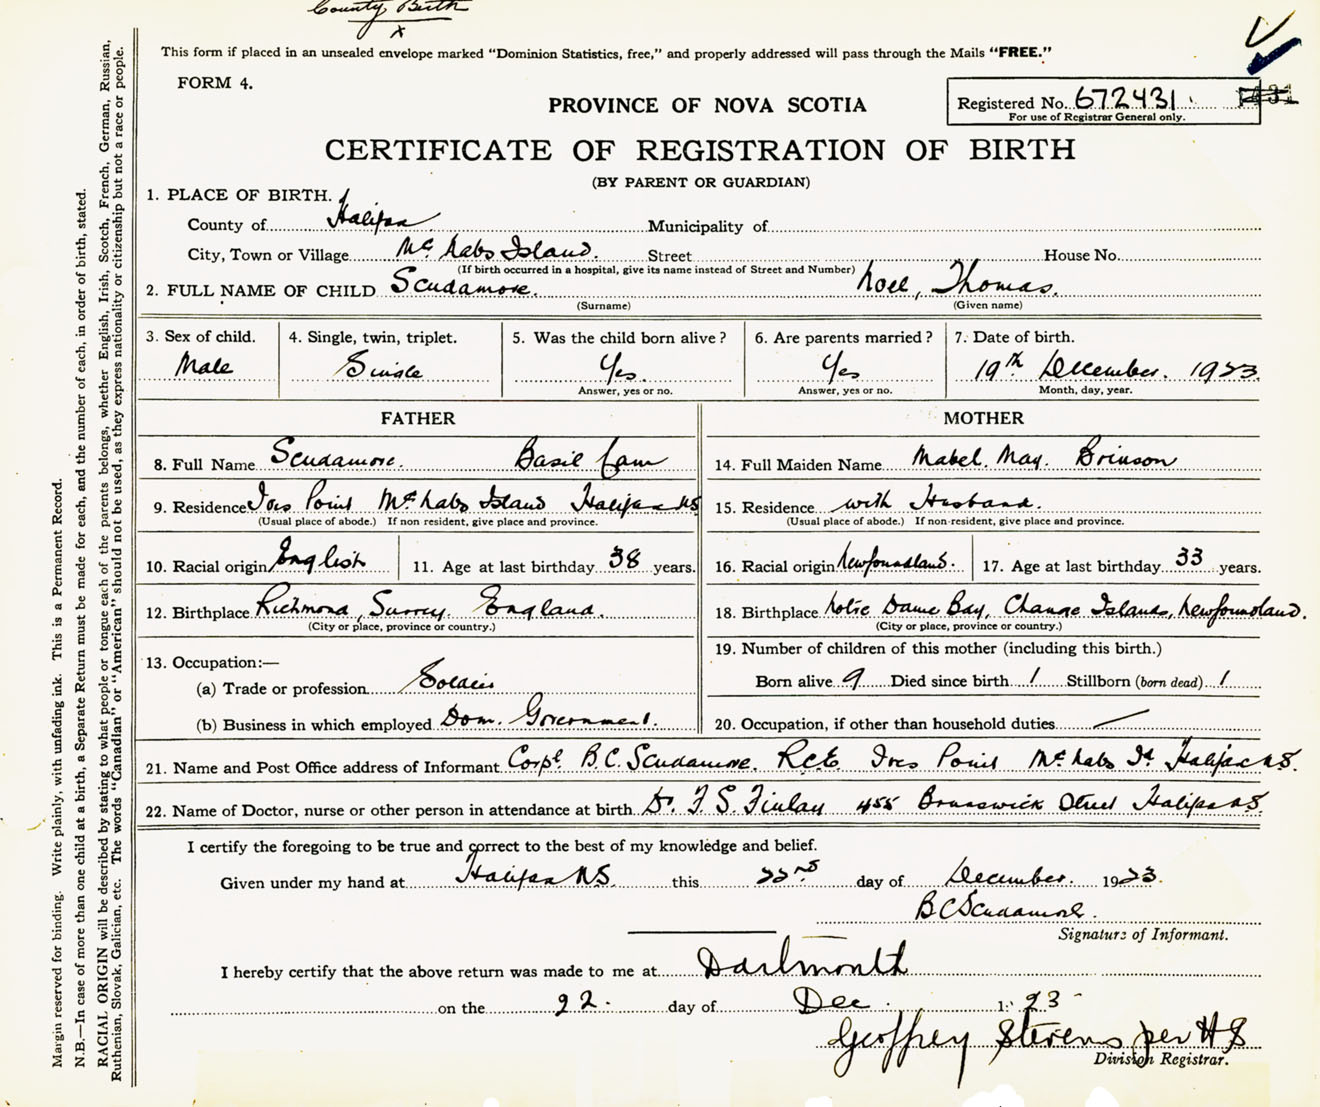 County Birth
x
This form if placed in an unsealed envelope marked "Dominion Statistics, free," and properly addressed will pass through the Mails "FREE."
FORM 4.
Registered No. 672431
For use of Registrar General only.
PROVINCE OF NOVA SCOTIA
CERTIFICATE OF REGISTRATION OF BIRTH
(BY PARENT OR GUARDIAN)
1. PLACE OF BIRTH.
County of Halifax Municipality of
City, Town or Village Mc Nabs Island. Street House No.
(If birth occurred in a hospital, give its name instead of Street and Number)
2. FULL NAME OF CHILD Scudamore. Noel, Thomas.
(Surname) (Given name)
3. Sex of child. 4. Single, twin, triplet. 5. Was the child born alive? 6. Are parents married? 7. Date of birth.
Male Single Yes. Yes 19th December. 1923.
Answer, yes or no. Answer, yes or no. Month, day, year.
FATHER MOTHER
8. Full Name Scudamore. Basil Cam 14. Full Maiden Name Mabel. May. Brinson
9. Residence Ives Point Mc Nabs Island Halifax NS 15. Residence with Husband.
(Usual place of abode.) If non resident, give place and province. (Usual place of abode.) If non-resident, give place and province.
10. Racial origin English 11. Age at last birthday 38 years. 16. Racial origin Newfoundland. 17. Age at last birthday 33 years.
12. Birthplace Richmond, Surrey. England. 18. Birthplace Notre Dame Bay, Change Islands, Newfoundland.
(City or place, province or country.) (City or place, province or country.)
13. Occupation:— 19. Number of children of this mother (including this birth.)
(a) Trade or profession Soldier Born alive 9 Died since birth 1 Stillborn (born dead) 1
(b) Business in which employed Dom. Government. 20. Occupation, if other than household duties —
21. Name and Post Office address of Informant Corpl. B.C. Scudamore. R.C.E. Ives Point Mc Nabs Id. Halifax N.S.
22. Name of Doctor, nurse or other person in attendance at birth Dr. F. S. Finlay 455 Brunswick Street Halifax N.S.
I certify the foregoing to be true and correct to the best of my knowledge and belief.
Given under my hand at Halifax N.S. this 22nd day of December. 1923.
B C Scudamore.
Signature of Informant.
I hereby certify that the above return was made to me at Dartmouth
on the 22. day of Dec. 1 23
Geoffrey Stevens per H S
Division Registrar.
Margin reserved for binding. Write plainly, with unfading ink. This is a Permanent Record.
N.B.—In case of more than one child at a birth, a Separate Return must be made for each, and the number of each, in order of birth, stated.
RACIAL ORIGIN will be described by stating to what people or tongue each of the parents belongs, whether English, Irish, Scotch, French, German, Russian,
Ruthenian, Slovak, Galician, etc. The words "Canadian" or "American" should not be used, as they express nationality or citizenship but not a race or people.